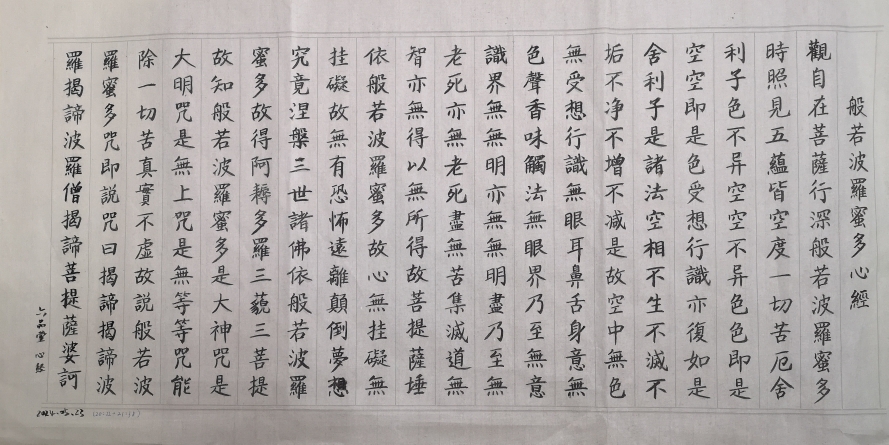 般若波羅蜜多心經
觀自在菩薩行深般若波羅蜜多
時照見五蘊皆空度一切苦厄舍
利子色不异空空不异色色即是
空空即是色受想行識亦復如是
舍利子是諸法空相不生不滅不
垢不净不增不減是故空中無色
無受想行識無眼耳鼻舌身意無
色聲香味觸法無眼界乃至無意
識界無無明亦無無明盡乃至無
老死亦無老死盡無苦集滅道無
智亦無得以無所得故菩提薩埵
依般若波羅蜜多故心無挂礙無
挂礙故無有恐怖遠離顛倒夢想
究竟涅槃三世諸佛依般若波羅
蜜多故得阿耨多羅三藐三菩提
故知般若波羅蜜多是大神咒是
大明咒是無上咒是無等等咒能
除一切苦真實不虛故説般若波
羅蜜多咒即説咒曰揭諦揭諦波
羅揭諦波羅僧揭諦菩提薩婆訶
六品堂 心經